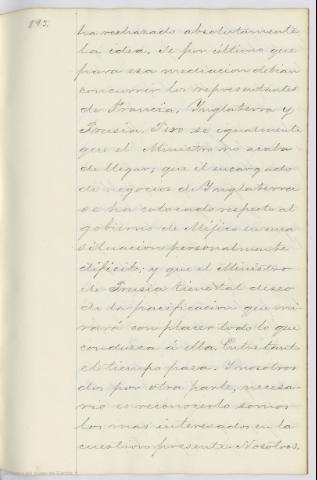 893.
ha rechazado absolutamente
la idea. Se por último que
para esa mediacion debian
concurrir los representantes
de Francia, Ynglaterra y
Prusia. Pero se igualmente
que el Ministro no acaba
de llegar, que el encargado
de negocios de Ynglaterra
se ha colocado respecto al
gobierno de Méjico en una
situacion personalmente
dificil; y que el Ministro
de Prusia tiene tal deseo
de la pacificacion que mi
rará con placer todo lo que
conduzca á ella. Entretanto
el tiempo pasa. Y nosotros
dos por otra parte, necesa
rio es reconocerlo somos
los mas interesados en la
cuestion presente. Nosotros,